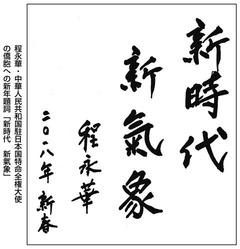 新時代
新氣象
程永華
二〇一八年 新春
程永華・中華人民共和国駐日本国特命全権大使
の僑胞への新年題詞「新時代　新氣象」